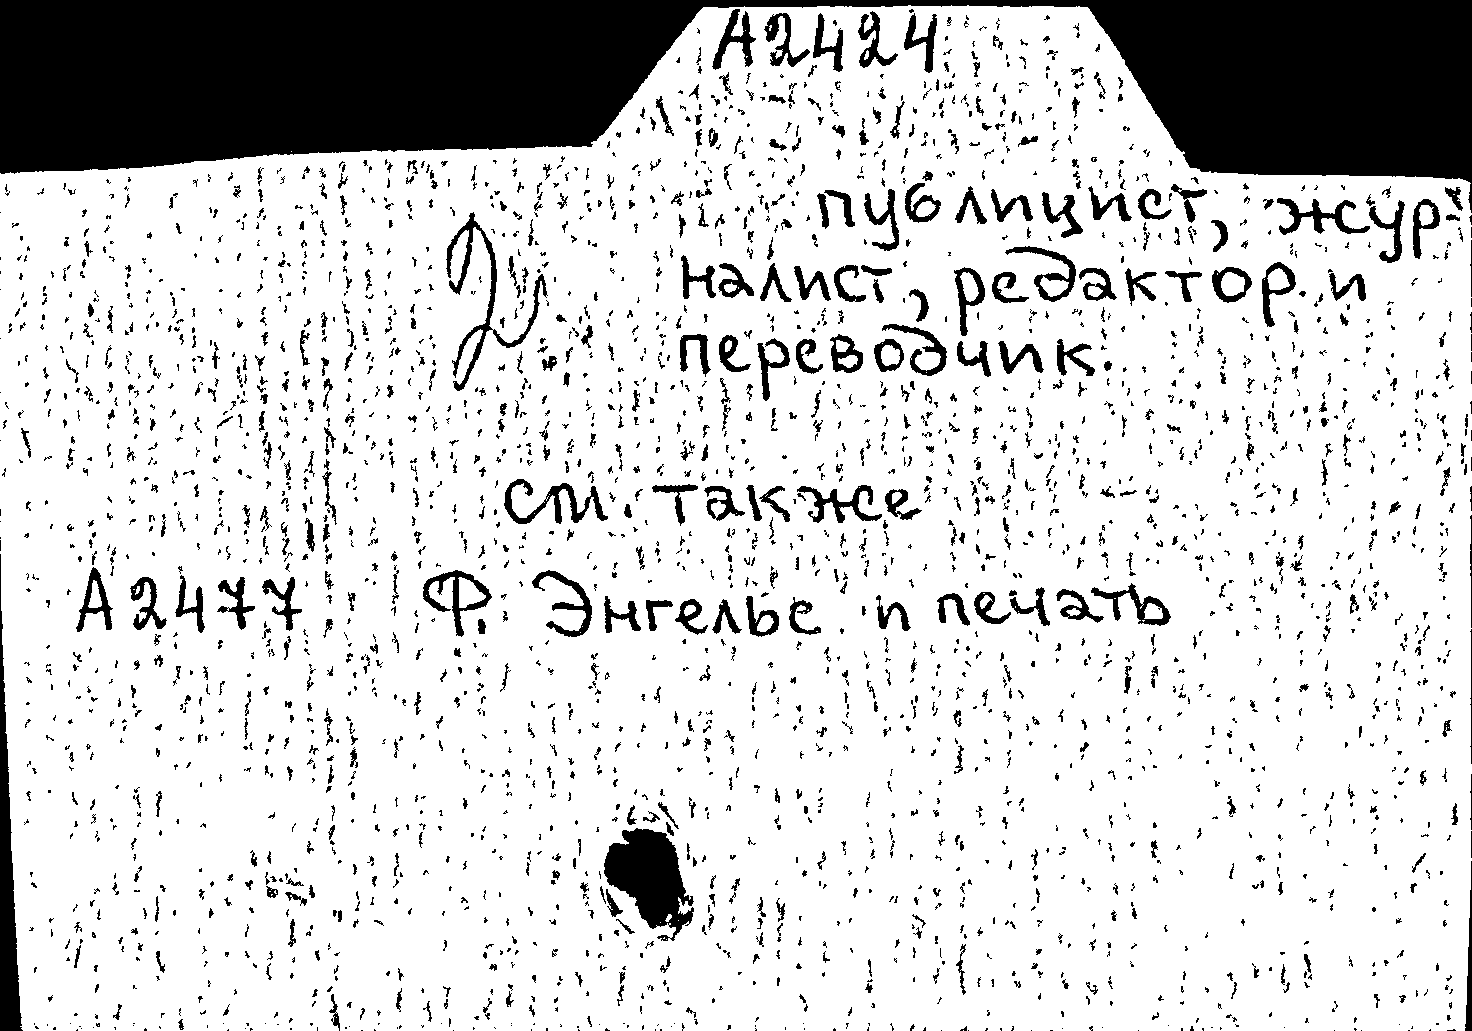 А2424
публицист, жур-
налист, редактор и
переводчик.
см. также
А2477 Ф. Энгельс и печать